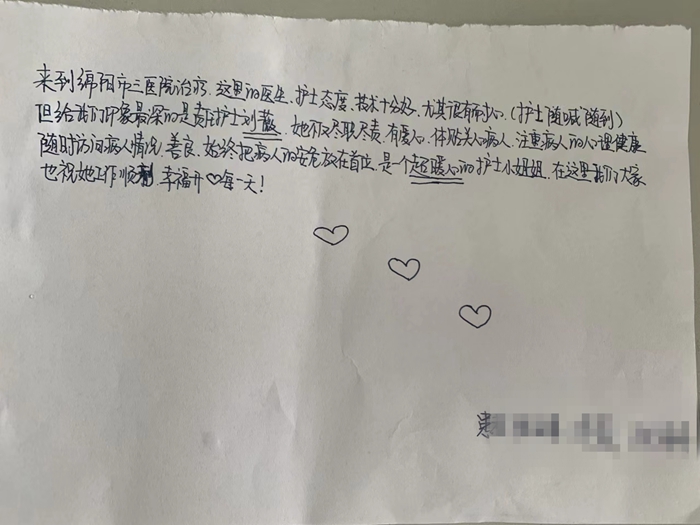 来到绵阳市三医院治疗.这里的医生、护士态度、技术十分好、尤其很有耐心.(护士随喊随到)
但给我们印象最深的是责任护士刘 她不仅尽职尽责.有爱心.体贴关心病人.注重病人的心理健康
随时访问病人情况.善良.始终把病人的安危放在首位.是个超暖心的护士小姐姐.在这里我们大家
也祝她工作顺利.幸福开♡每一天!
患